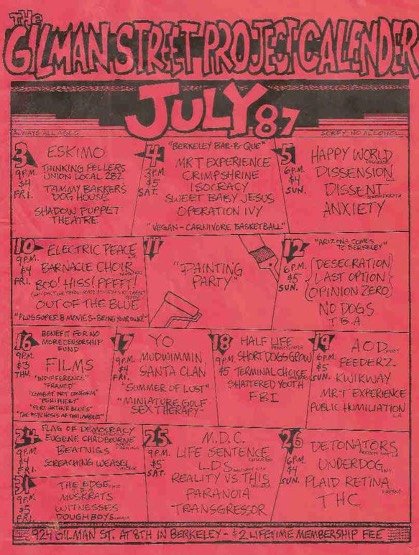 THE
GILMAN STREET PROJECT CALENDER
JULY 87
ALWAYS ALL AGES
SORRY, NO ALCOHOL
3
9 P.M.
$4
FRI.
ESKIMO
THINKING FELLERS
UNION LOCAL 282
TAMMY BAKKERS
DOG HOUSE
SHADOW PUPPET
THEATRE
4
3 P.M.
$5
SAT.
"BERKELEY BAR-B-QUE"
MRT EXPERIENCE
CRIMPSHRINE
ISOCRACY
SWEET BABY JESUS
OPERATION IVY
"VEGAN-CARNIVORE BASKETBALL"
5
6 P.M.
$4
SUN.
HAPPY WORLD
DISSENSION
DISSENT
ANXIETY
10
9 P.M.
$4
FRI.
ELECTRIC PEACE
BARNACLE CHOIR
BOO! HISS! PFFFT!
OUT OF THE BLUE
"PLUS SUPER 8 MOVIES-BRING YOUR OWN"
11
"PAINTING
PARTY"
12
6 P.M.
$4
SUN.
"ARIZONA COMES
TO BERKELEY"
DESECRATION
LAST OPTION
OPINION ZERO
NO DOGS
T.B.A.
16
9 P.M.
$3
THU
BENEFIT FOR NO
MORE CENSORSHIP
FUND
FILMS
"INDIFFERENCE"
"FRANCO"
17
9 P.M.
$4
FRI.
YO
MUDWIMMIN
SANTA CLAN
"SUMMER OF LUST"
"MINIATURE GOLF
SEX THERAPY"
18
9 P.M.
$5
HALF LIFE
SHORT DOGS GROW
TERMINAL CHOICE
SHATTERED YOUTH
FBI
19
6 P.M.
$5
SUN.
AOD
FEEDERZ
KWIKWAY
MR. T EXPERIENCE
PUBLIC HUMILIATION
24
9 P.M.
$5
FRI.
FLAG OF DEMOCRACY
EUGENE CHADBOURNE
BEATNIGS
SCREACHING WEASEL
25
9 P.M.
$5
SAT.
M.D.C.
LIFE SENTENCE
L.D.S.
REALITY VS THIS
PARANOIA
TRANSGRESSOR
26
6 P.M.
$4
SUN.
DETONATORS
UNDERDOG
PLAID RETINA
THC
31
9 P.M.
$5
FRI.
THE EDGE
MUSKRATS
WITNESSES
DOUGHBOYS
924 GILMAN ST. AT 8TH IN BERKELEY - $2 LIFETIME MEMBERSHIP FEE